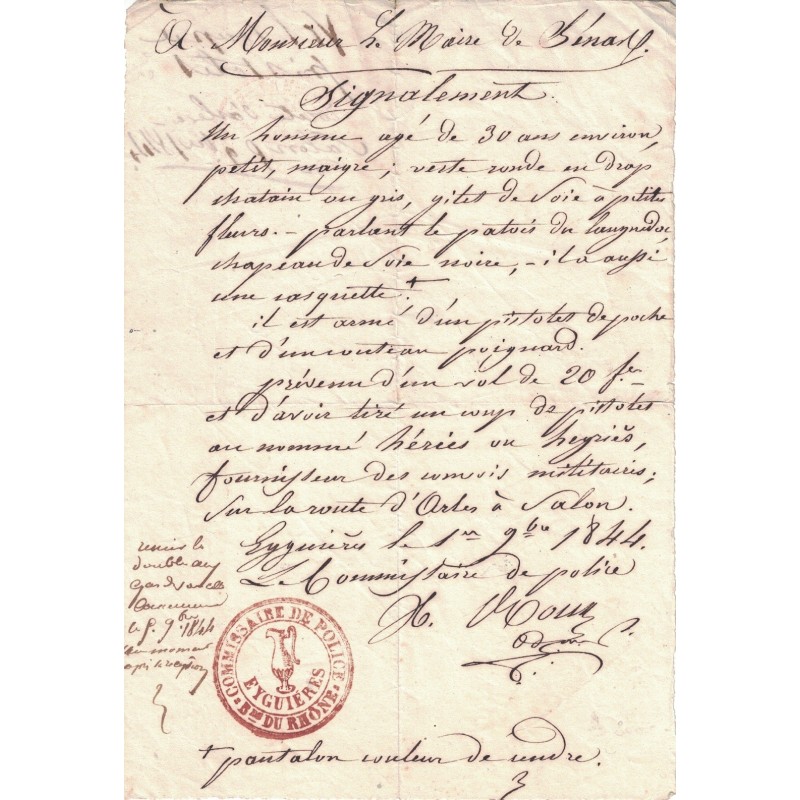 A Monsieur Le Maire de Sénas.
Signalement.
Un homme agé de 30 ans environ,
petit, maigre; veste ronde en drap
chatain ou gris, gilet de soie à petites
fleurs. - parlant le patois du languedoc
chapeau de soie noire, - il a aussi
une casquette. +
il est armé d'un pistolet de poche
et d'un couteau poignard.
prévenu d'un vol de 20 f.
et d'avoir tiré un coup de pistolet
au nommé hériès ou heyriès,
fournisseur des convois militaires;
sur la route d'Arles à Salon.
Eyguières le 1er 9bre 1844.
Le Commissaire de police
remis le
double au
le 5. 9bre 1844
au moment
après la réception
COMMISSAIRE DE POLICE
EYGUIÈRES
Bes DU RHÔNE
+ pantalon couleur de cendre.